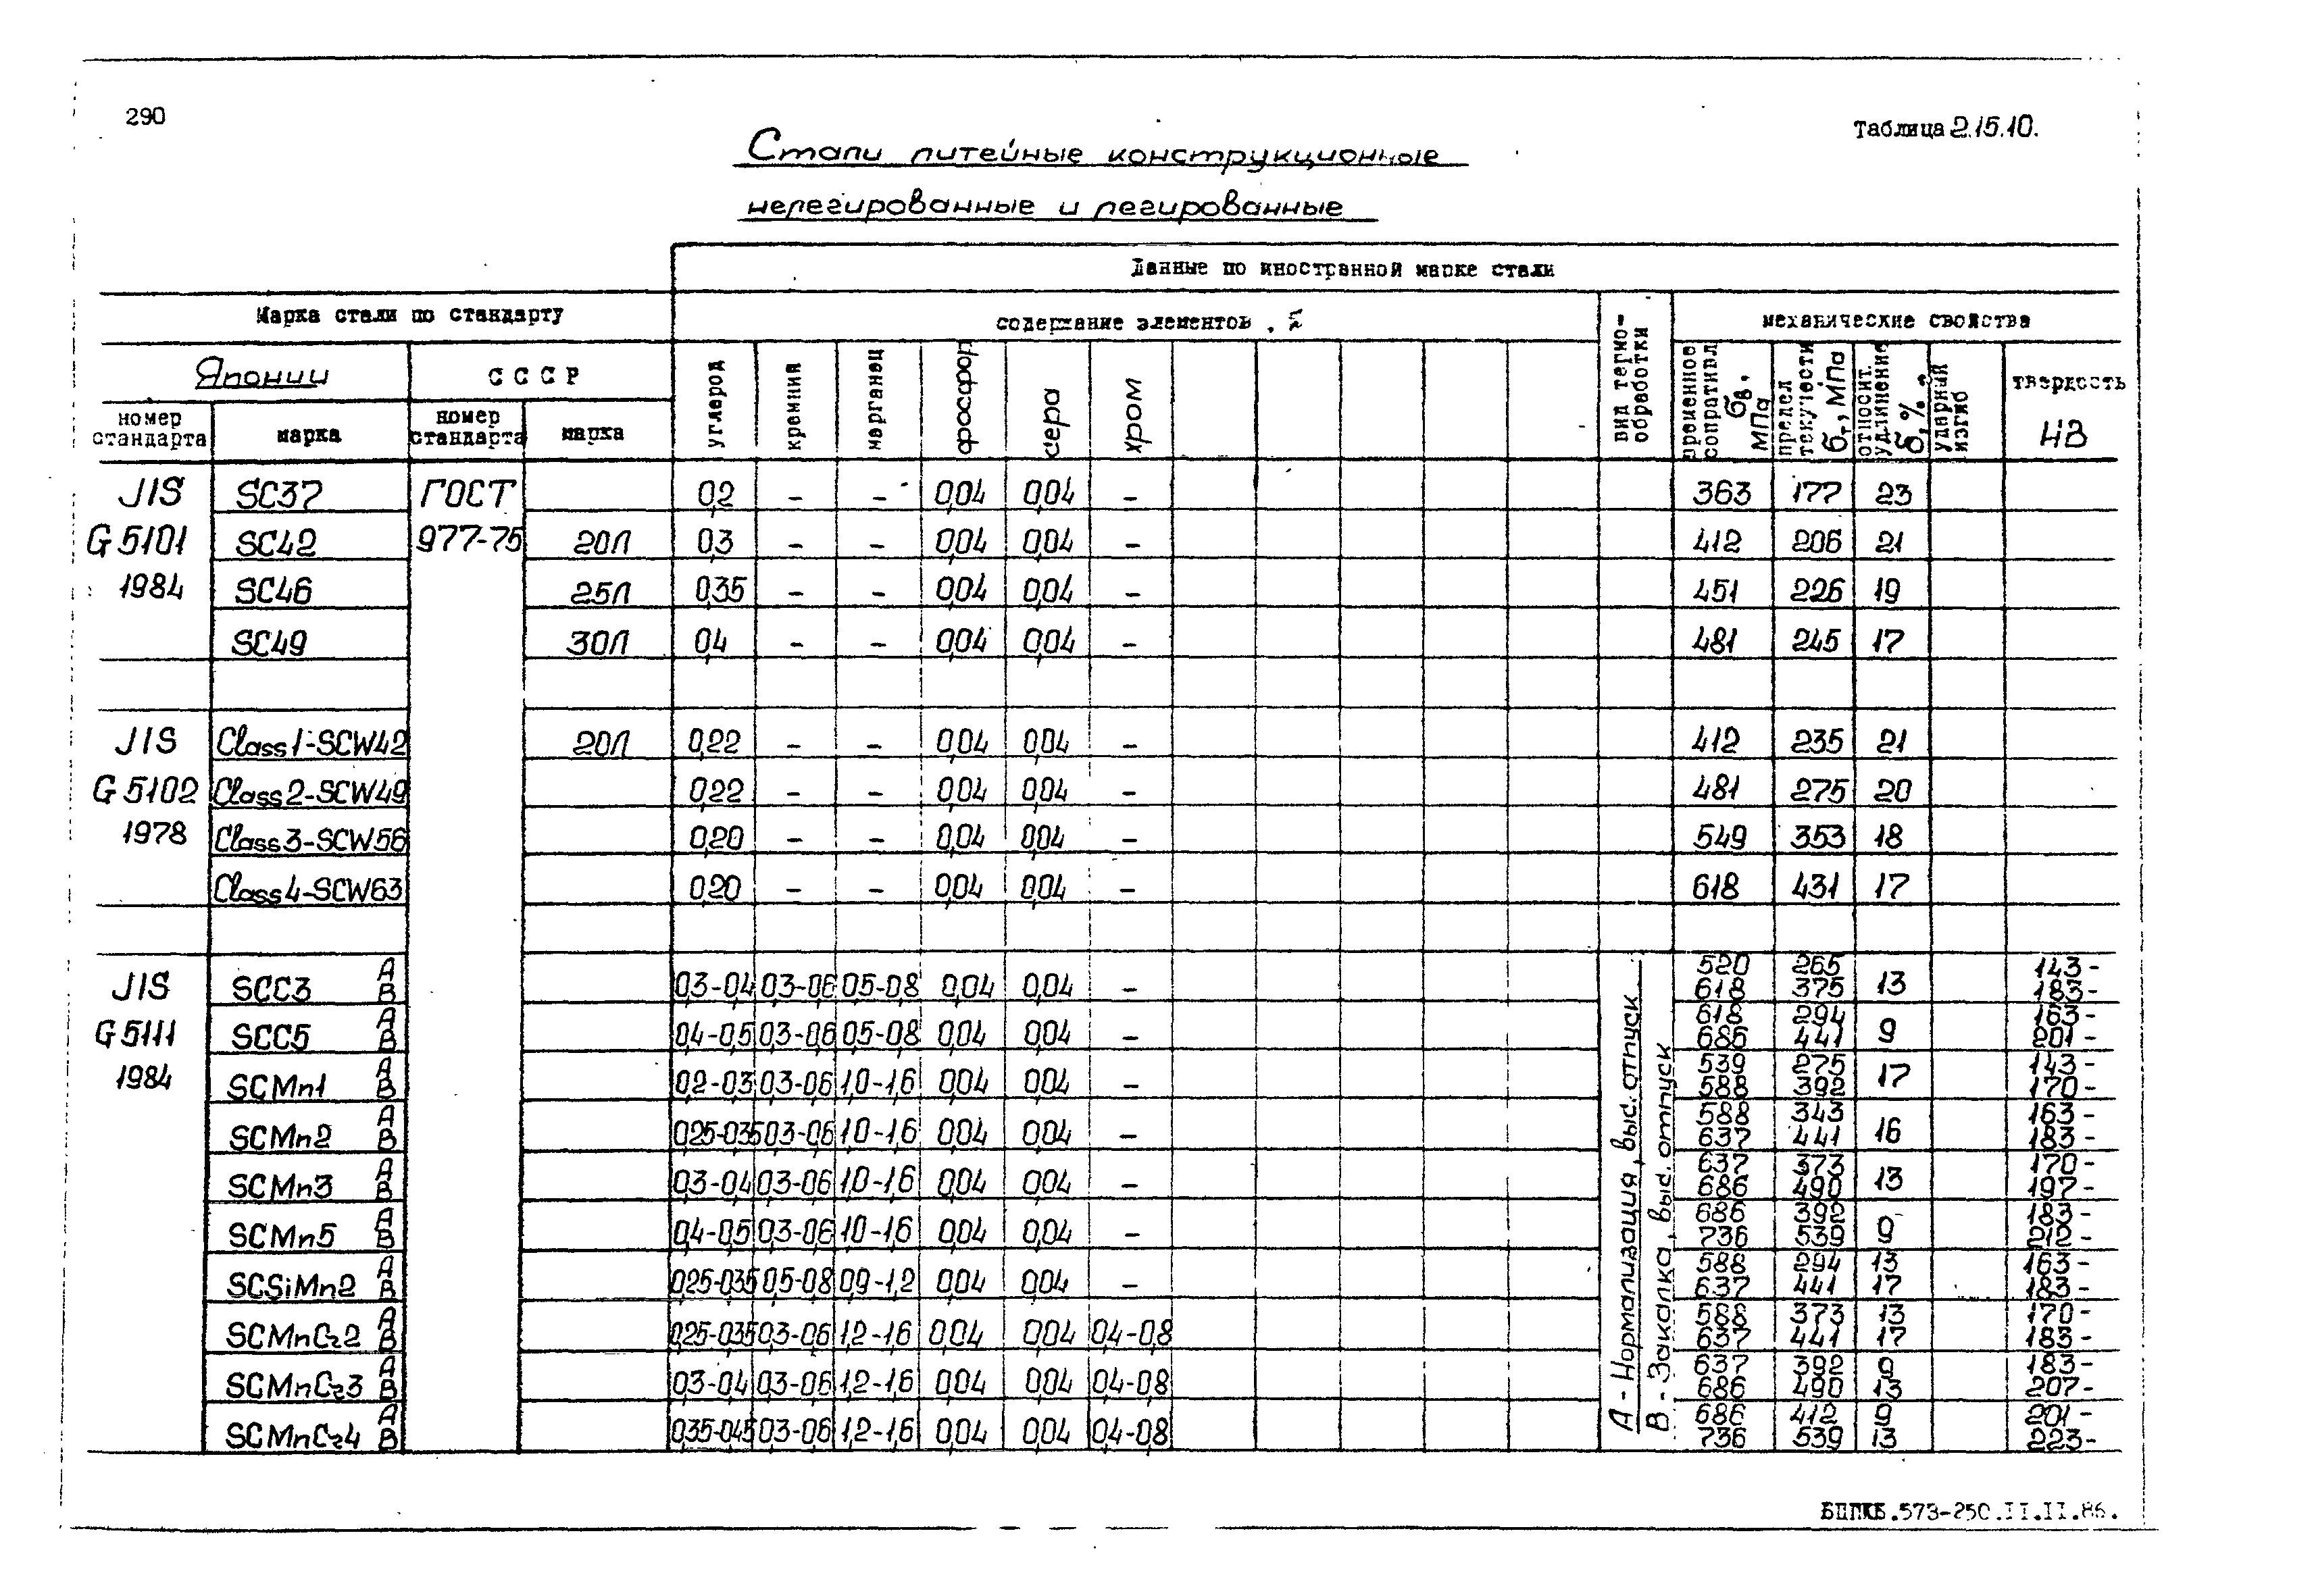 290
Таблица 2.15.10.
Стали литейные конструкционные
нелегированные и легированные
Данные по иностранной марке стали
Марка стали по стандарту
содержание элементов, %
вид термо-
обработки
механические свойства
Японии
СССР
углерод
кремния
марганец
фосфор
сера
хром
временное сопративл. σв, МПа
предел текучести σт, МПа
относит. удлинение δ, %
ударный изгиб
твердость НВ
номер стандарта
марка
номер стандарта
марка
JIS SC37 ГОСТ 0,2 – – 0,04 0,04 – 363 177 23
G5101 SC42 977-75 20Л 0,3 – – 0,04 0,04 – 412 206 21
1984 SC46 25Л 0,35 – – 0,04 0,04 – 451 226 19
SC49 30Л 0,4 – – 0,04 0,04 – 481 245 17
JIS Class1-SCW42 20Л 0,22 – – 0,04 0,04 – 412 235 21
G5102 Class2-SCW49 0,22 – – 0,04 0,04 – 481 275 20
1978 Class3-SCW56 0,20 – – 0,04 0,04 – 549 353 18
Class4-SCW63 0,20 – – 0,04 0,04 – 618 431 17
А - Нормализация, выс. отпуск
В - Закалка, выс. отпуск
JIS SCC3 A 0,3-0,4 0,3-0,6 0,5-0,8 0,04 0,04 – 520 265 13 143-
B 618 375 183-
G5111 SCC5 A 0,4-0,5 0,3-0,6 0,5-0,8 0,04 0,04 – 618 294 9 163-
B 686 441 201-
1984 SCMn1 A 0,2-0,3 0,3-0,6 1,0-1,6 0,04 0,04 – 539 275 17 143-
B 588 392 170-
SCMn2 A 0,25-0,35 0,3-0,6 1,0-1,6 0,04 0,04 – 588 343 16 163-
B 637 441 183-
SCMn3 A 0,3-0,4 0,3-0,6 1,0-1,6 0,04 0,04 – 637 373 13 170-
B 686 490 197-
SCMn5 A 0,4-0,5 0,3-0,6 1,0-1,6 0,04 0,04 – 686 392 9 183-
B 736 539 212-
SCSiMn2 A 0,25-0,35 0,5-0,8 0,9-1,2 0,04 0,04 – 588 294 13 163-
B 637 441 17 183-
SCMnCr2 A 0,25-0,35 0,3-0,6 1,2-1,6 0,04 0,04 0,4-0,8 588 373 13 170-
B 637 441 17 183-
SCMnCr3 A 0,3-0,4 0,3-0,6 1,2-1,6 0,04 0,04 0,4-0,8 637 392 9 183-
B 686 490 13 207-
SCMnCr4 A 0,35-0,45 0,3-0,6 1,2-1,6 0,04 0,04 0,4-0,8 686 412 9 201-
B 736 539 13 223-
БППКБ.573-250.II.II.86.